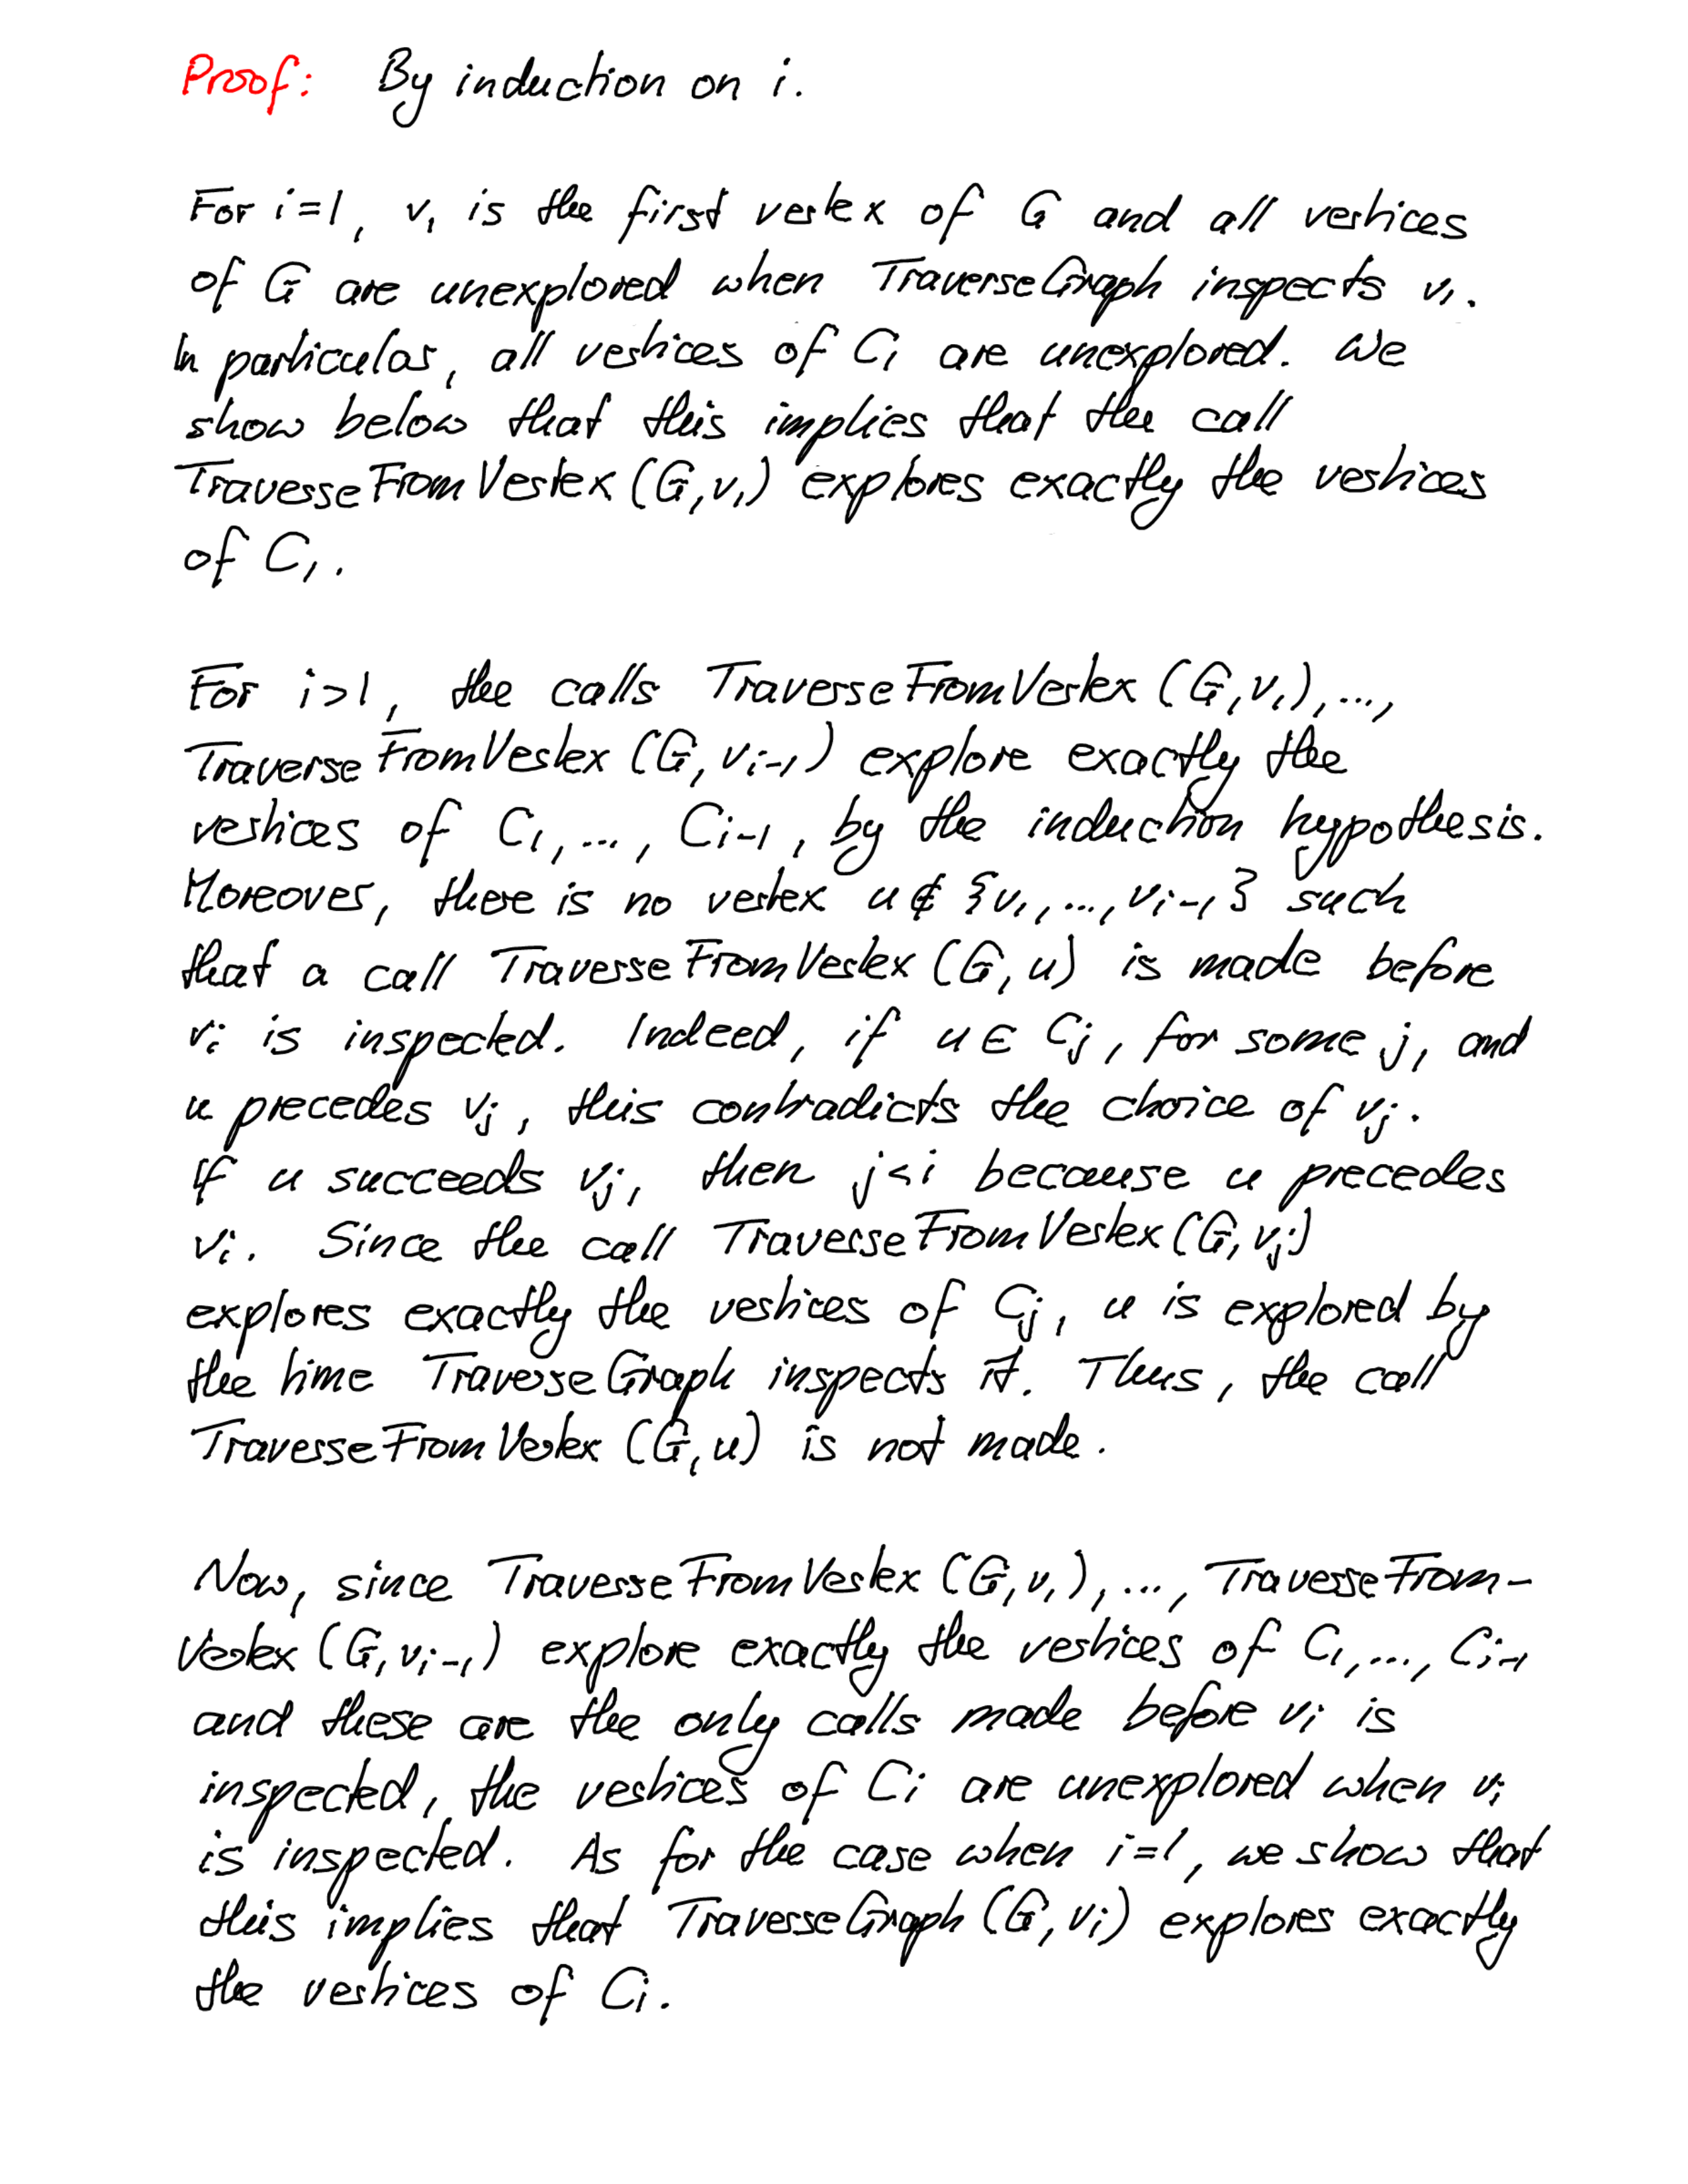 Proof: By induction on i.
For i=1, v₁ is the first vertex of G and all vertices
of G are unexplored when TraverseGraph inspects v₁.
In particular, all vertices of C₁ are unexplored. We
show below that this implies that the call
TraverseFromVertex (G,v₁) explores exactly the vertices
of C₁.
For i>1, the calls TraverseFromVertex (G,v₁),...,
TraverseFromVertex (G,vᵢ₋₁) explore exactly the
vertices of C₁,..., Cᵢ₋₁, by the induction hypothesis.
Moreover, there is no vertex u ∉ {v₁,...,vᵢ₋₁} such
that a call TraverseFromVertex (G,u) is made before
vᵢ is inspected. Indeed, if u ∈ Cⱼ, for some j, and
u precedes vⱼ, this contradicts the choice of vⱼ.
If u succeeds vⱼ, then j<i because u precedes
vᵢ. Since the call TraverseFromVertex (G,vⱼ)
explores exactly the vertices of Cⱼ, u is explored by
the time TraverseGraph inspects it. Thus, the call
TraverseFromVertex (G,u) is not made.
Now, since TraverseFromVertex (G,v₁),..., TraverseFrom-
Vertex (G,vᵢ₋₁) explore exactly the vertices of C₁,..., Cᵢ₋₁
and these are the only calls made before vᵢ is
inspected, the vertices of Cᵢ are unexplored when vᵢ
is inspected. As for the case when i=1, we show that
this implies that TraverseGraph (G,vᵢ) explores exactly
the vertices of Cᵢ.